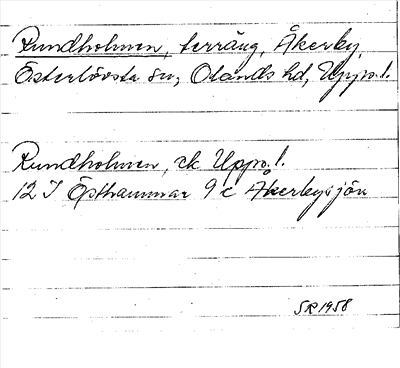 Rundholmen, terräng, Åkerby,
Österlövsta sn, Olands hd, Upps. l.
Rundholmen, ek Upps. l.
12 I Östhammar 9 c Åkerbysjön
SR 1958